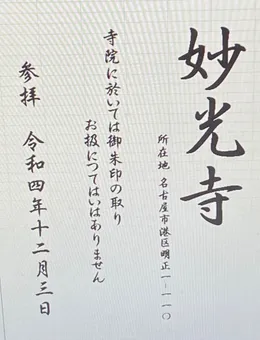 妙光寺
所在地 名古屋市港区明正一-一一〇
寺院に於いては御朱印の取り
お扱につてはいはありません
参拝 令和四年十二月三日